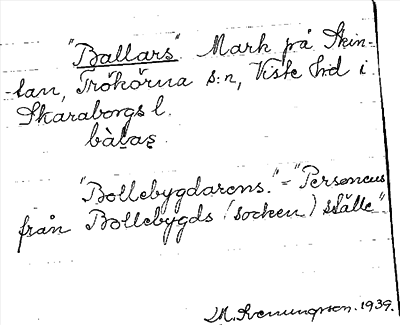 "Ballars" Mark på Skin-
-tan, Trökörna s:n, Viste hd i
Skaraborgs l.
bàḷas̨
"Bollebygdarens." = "Personens
från Bollebygds (socken) ställe".
M. Svenungson. 1939.